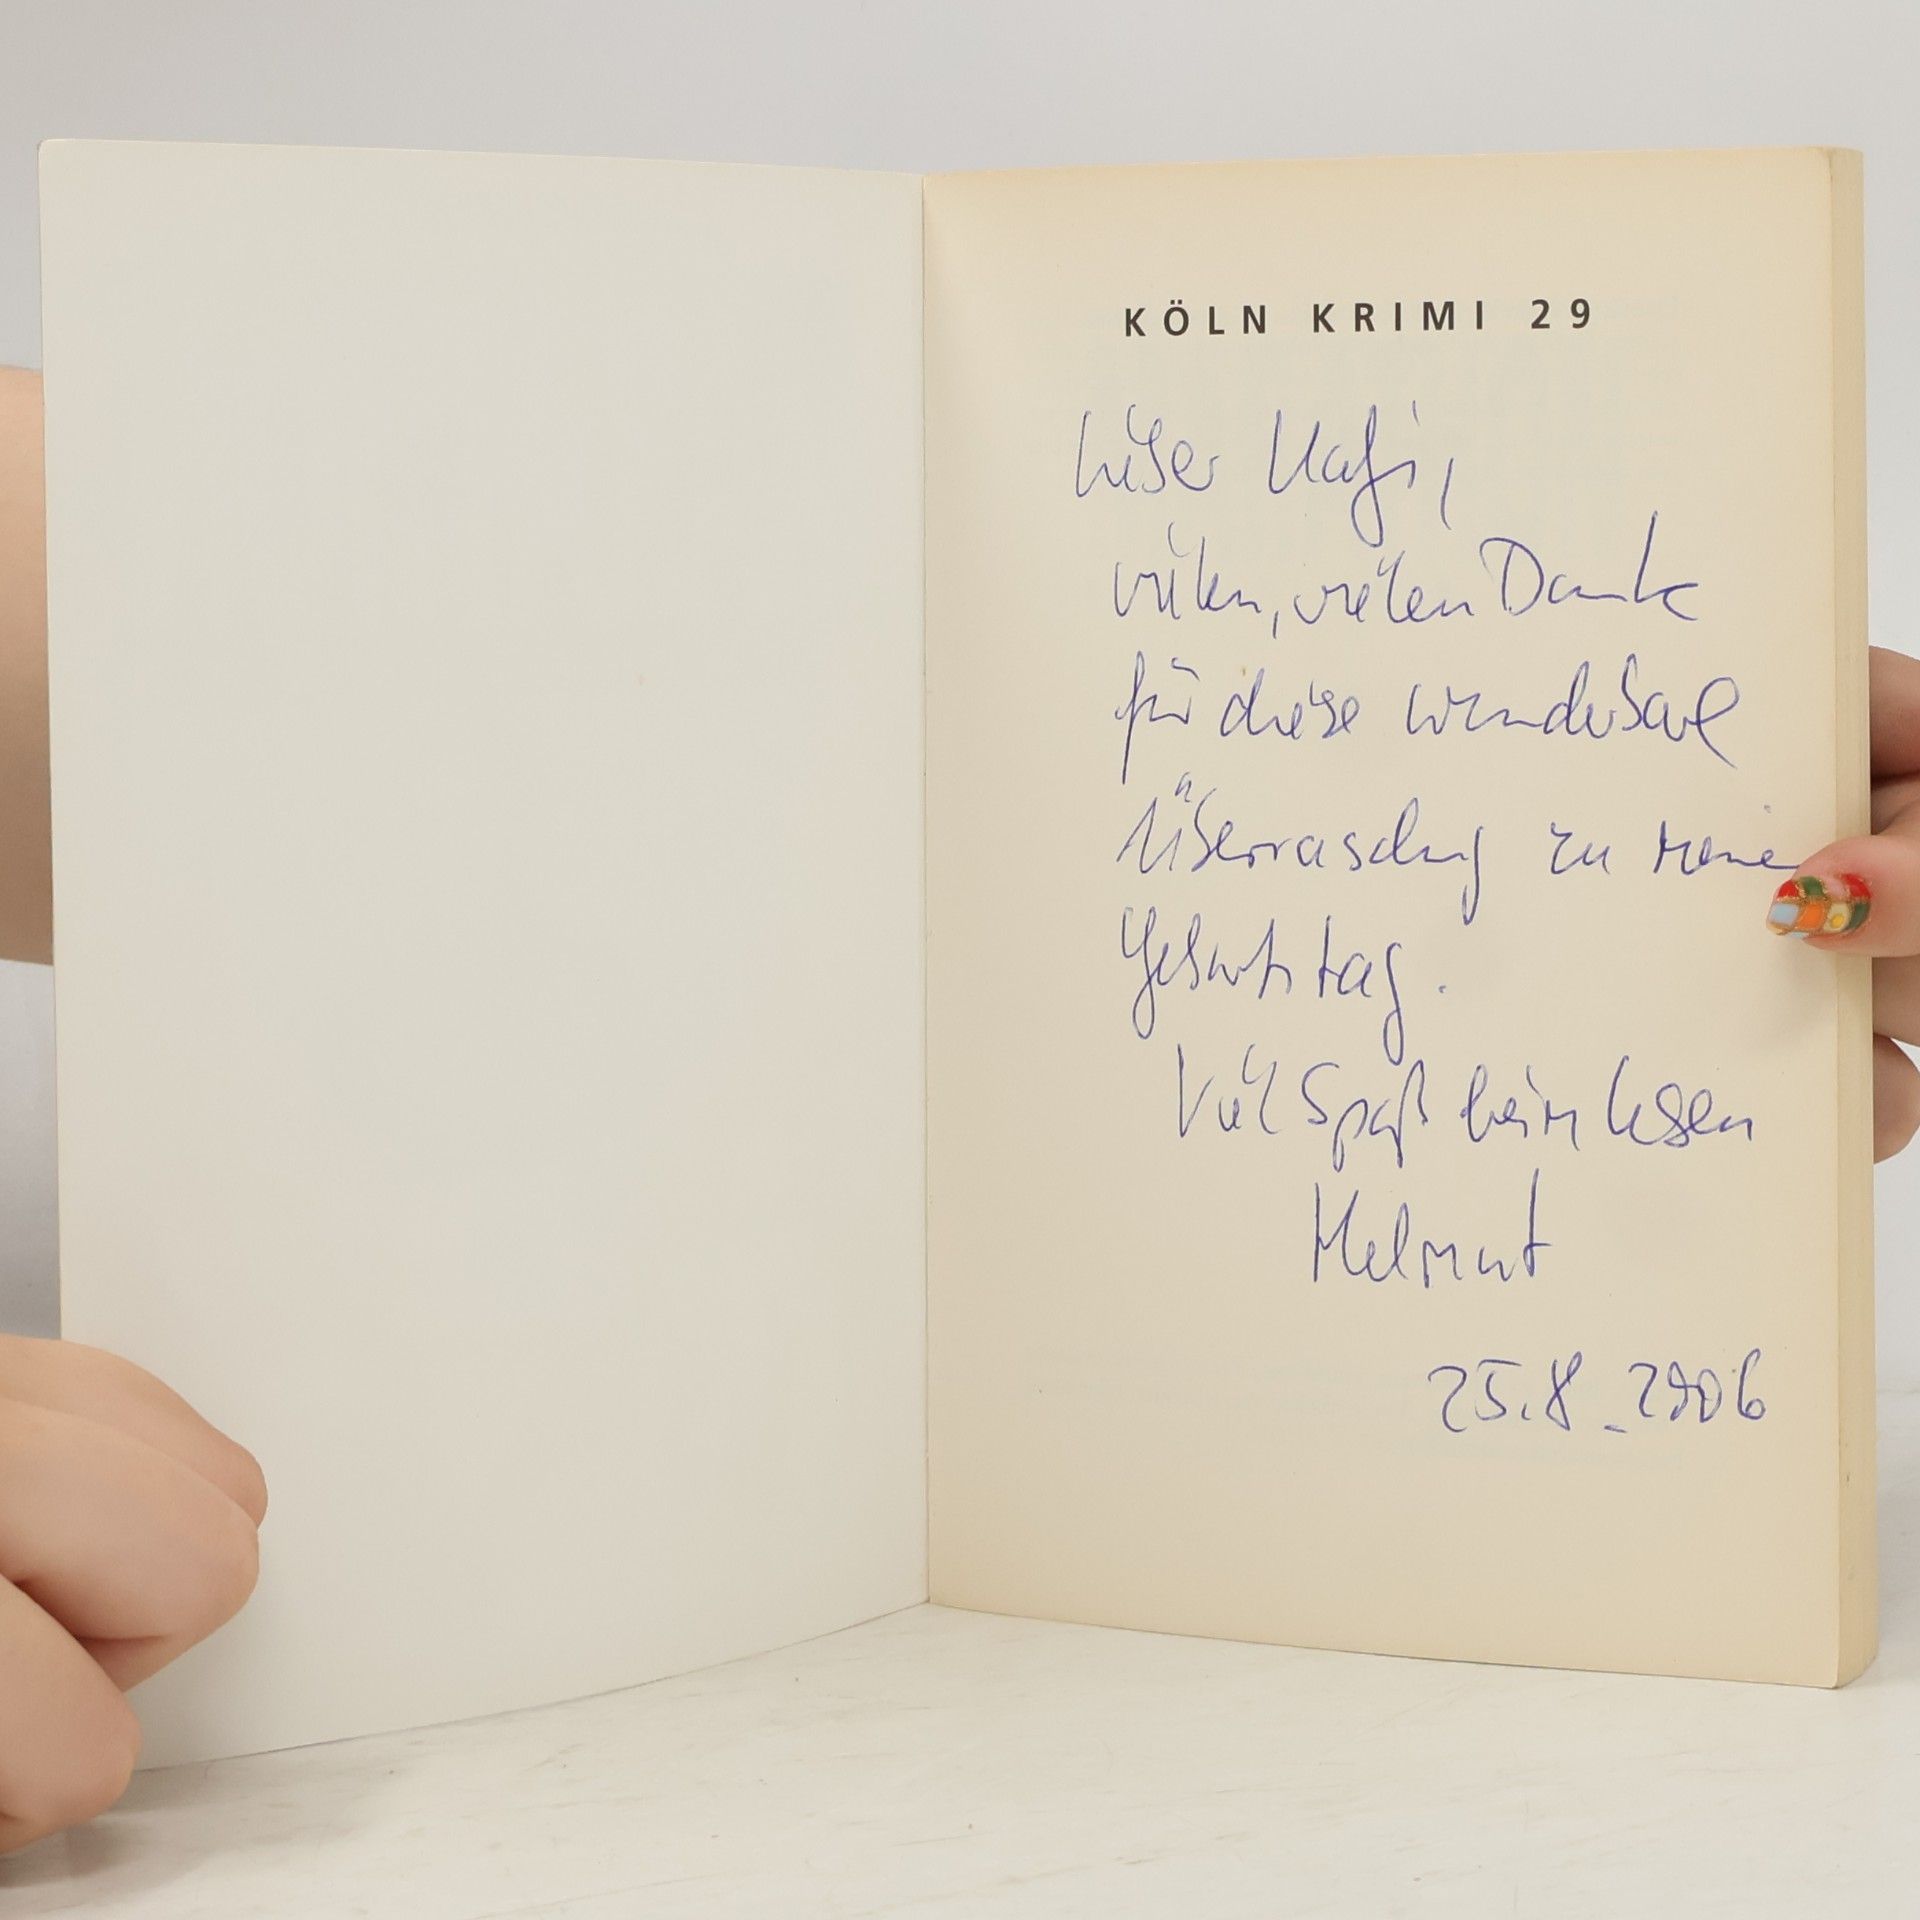 KÖLN KRIMI 29
Lieber
vielen, vielen Dank
für diese wunderbare
Überraschung zu meinem
Geburtstag.
Viel Spaß beim Lesen
Helmut
25.8.2006